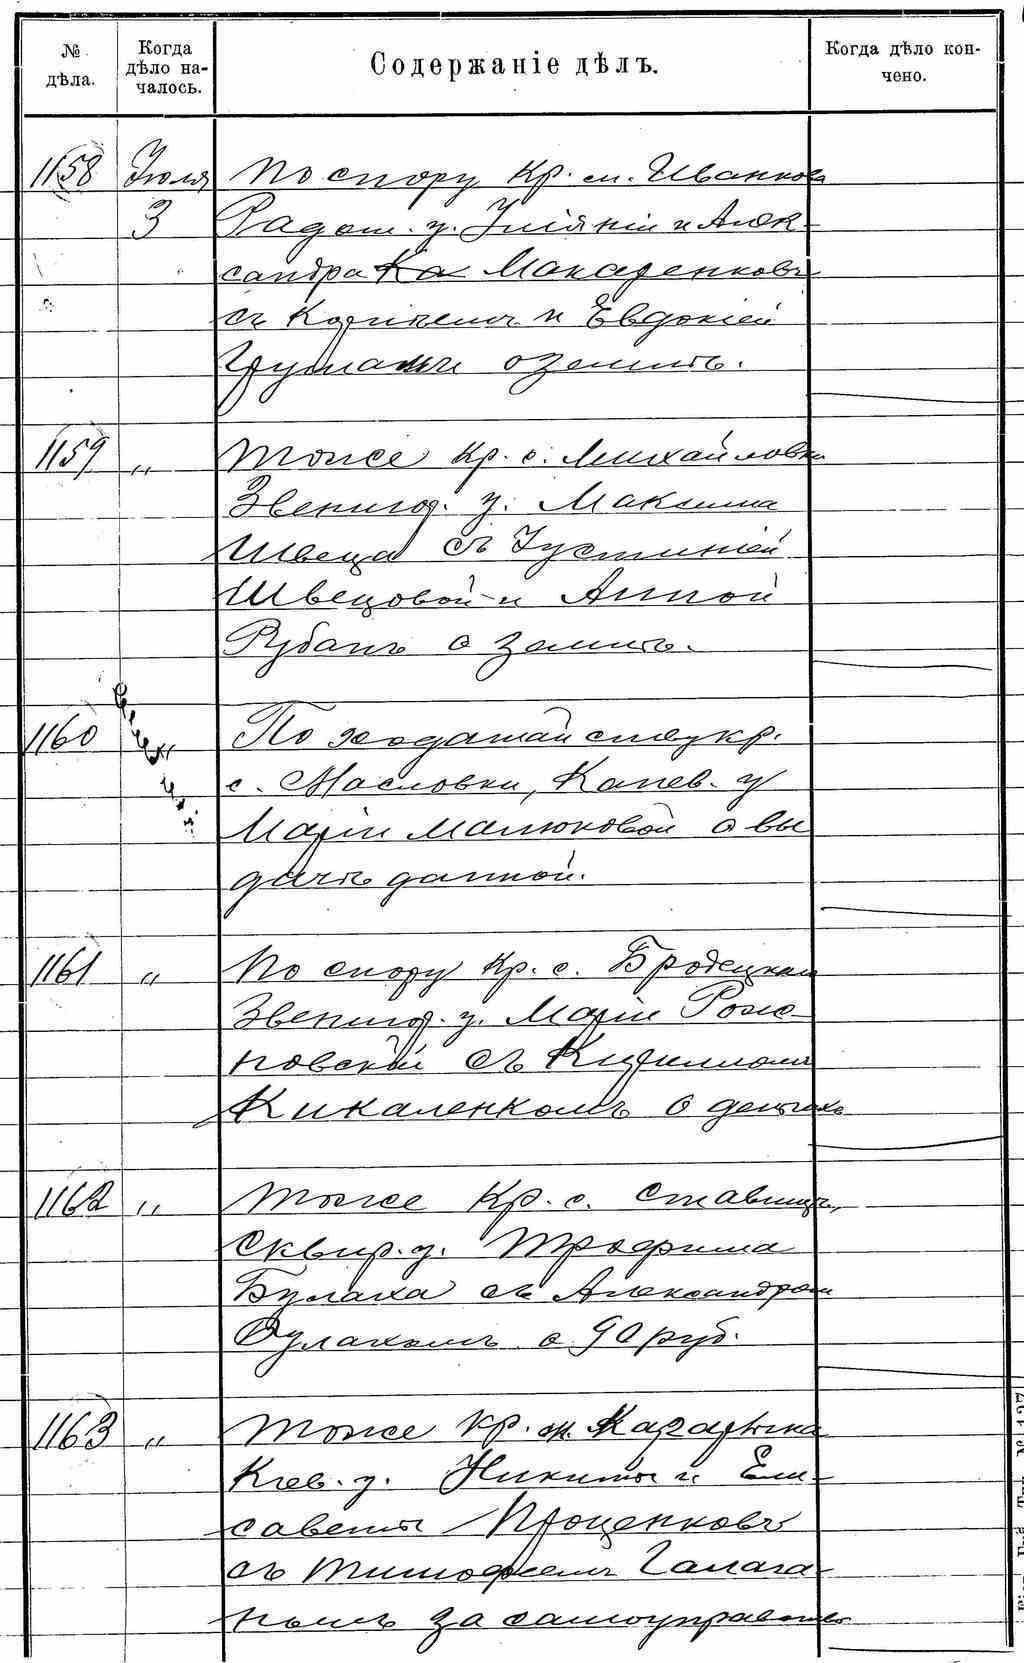 № дѣла.
Когда дѣло началось.
Содержаніе дѣлъ.
Когда дѣло кончено.
1158 Іюля По спору кр. м. Иванкова
3 Радом. у. Уліяніи и Алек-
сандра Макаренковъ
съ и Евдокіей
о землѣ.
1159 „ Тоже кр. с. Михайловки
Звениг. у. Максима
Швеца съ Іустиніей
Швецовой и Анной
Рубанъ о землѣ.
1160 „ По ходатайству кр.
с. Масловки, Канев. у
Маріи Малюковой о вы
дачѣ данной.
1161 „ По спору кр. с. Бродецкаго
Звениг. у. Маріи Рома-
новской съ Кирилломъ
Кикаленкомъ о деньгахъ
1162 „ Тоже кр. с. Ставищъ,
Сквир. у. Трофима
Булаха съ Александромъ
Булахомъ о 90 руб.
1163 „ Тоже кр. м. Кагарлыка
Кіев. у. Никиты и Ели-
саветы Проценковъ
съ Тимофеемъ Галага-
номъ за самоуправство